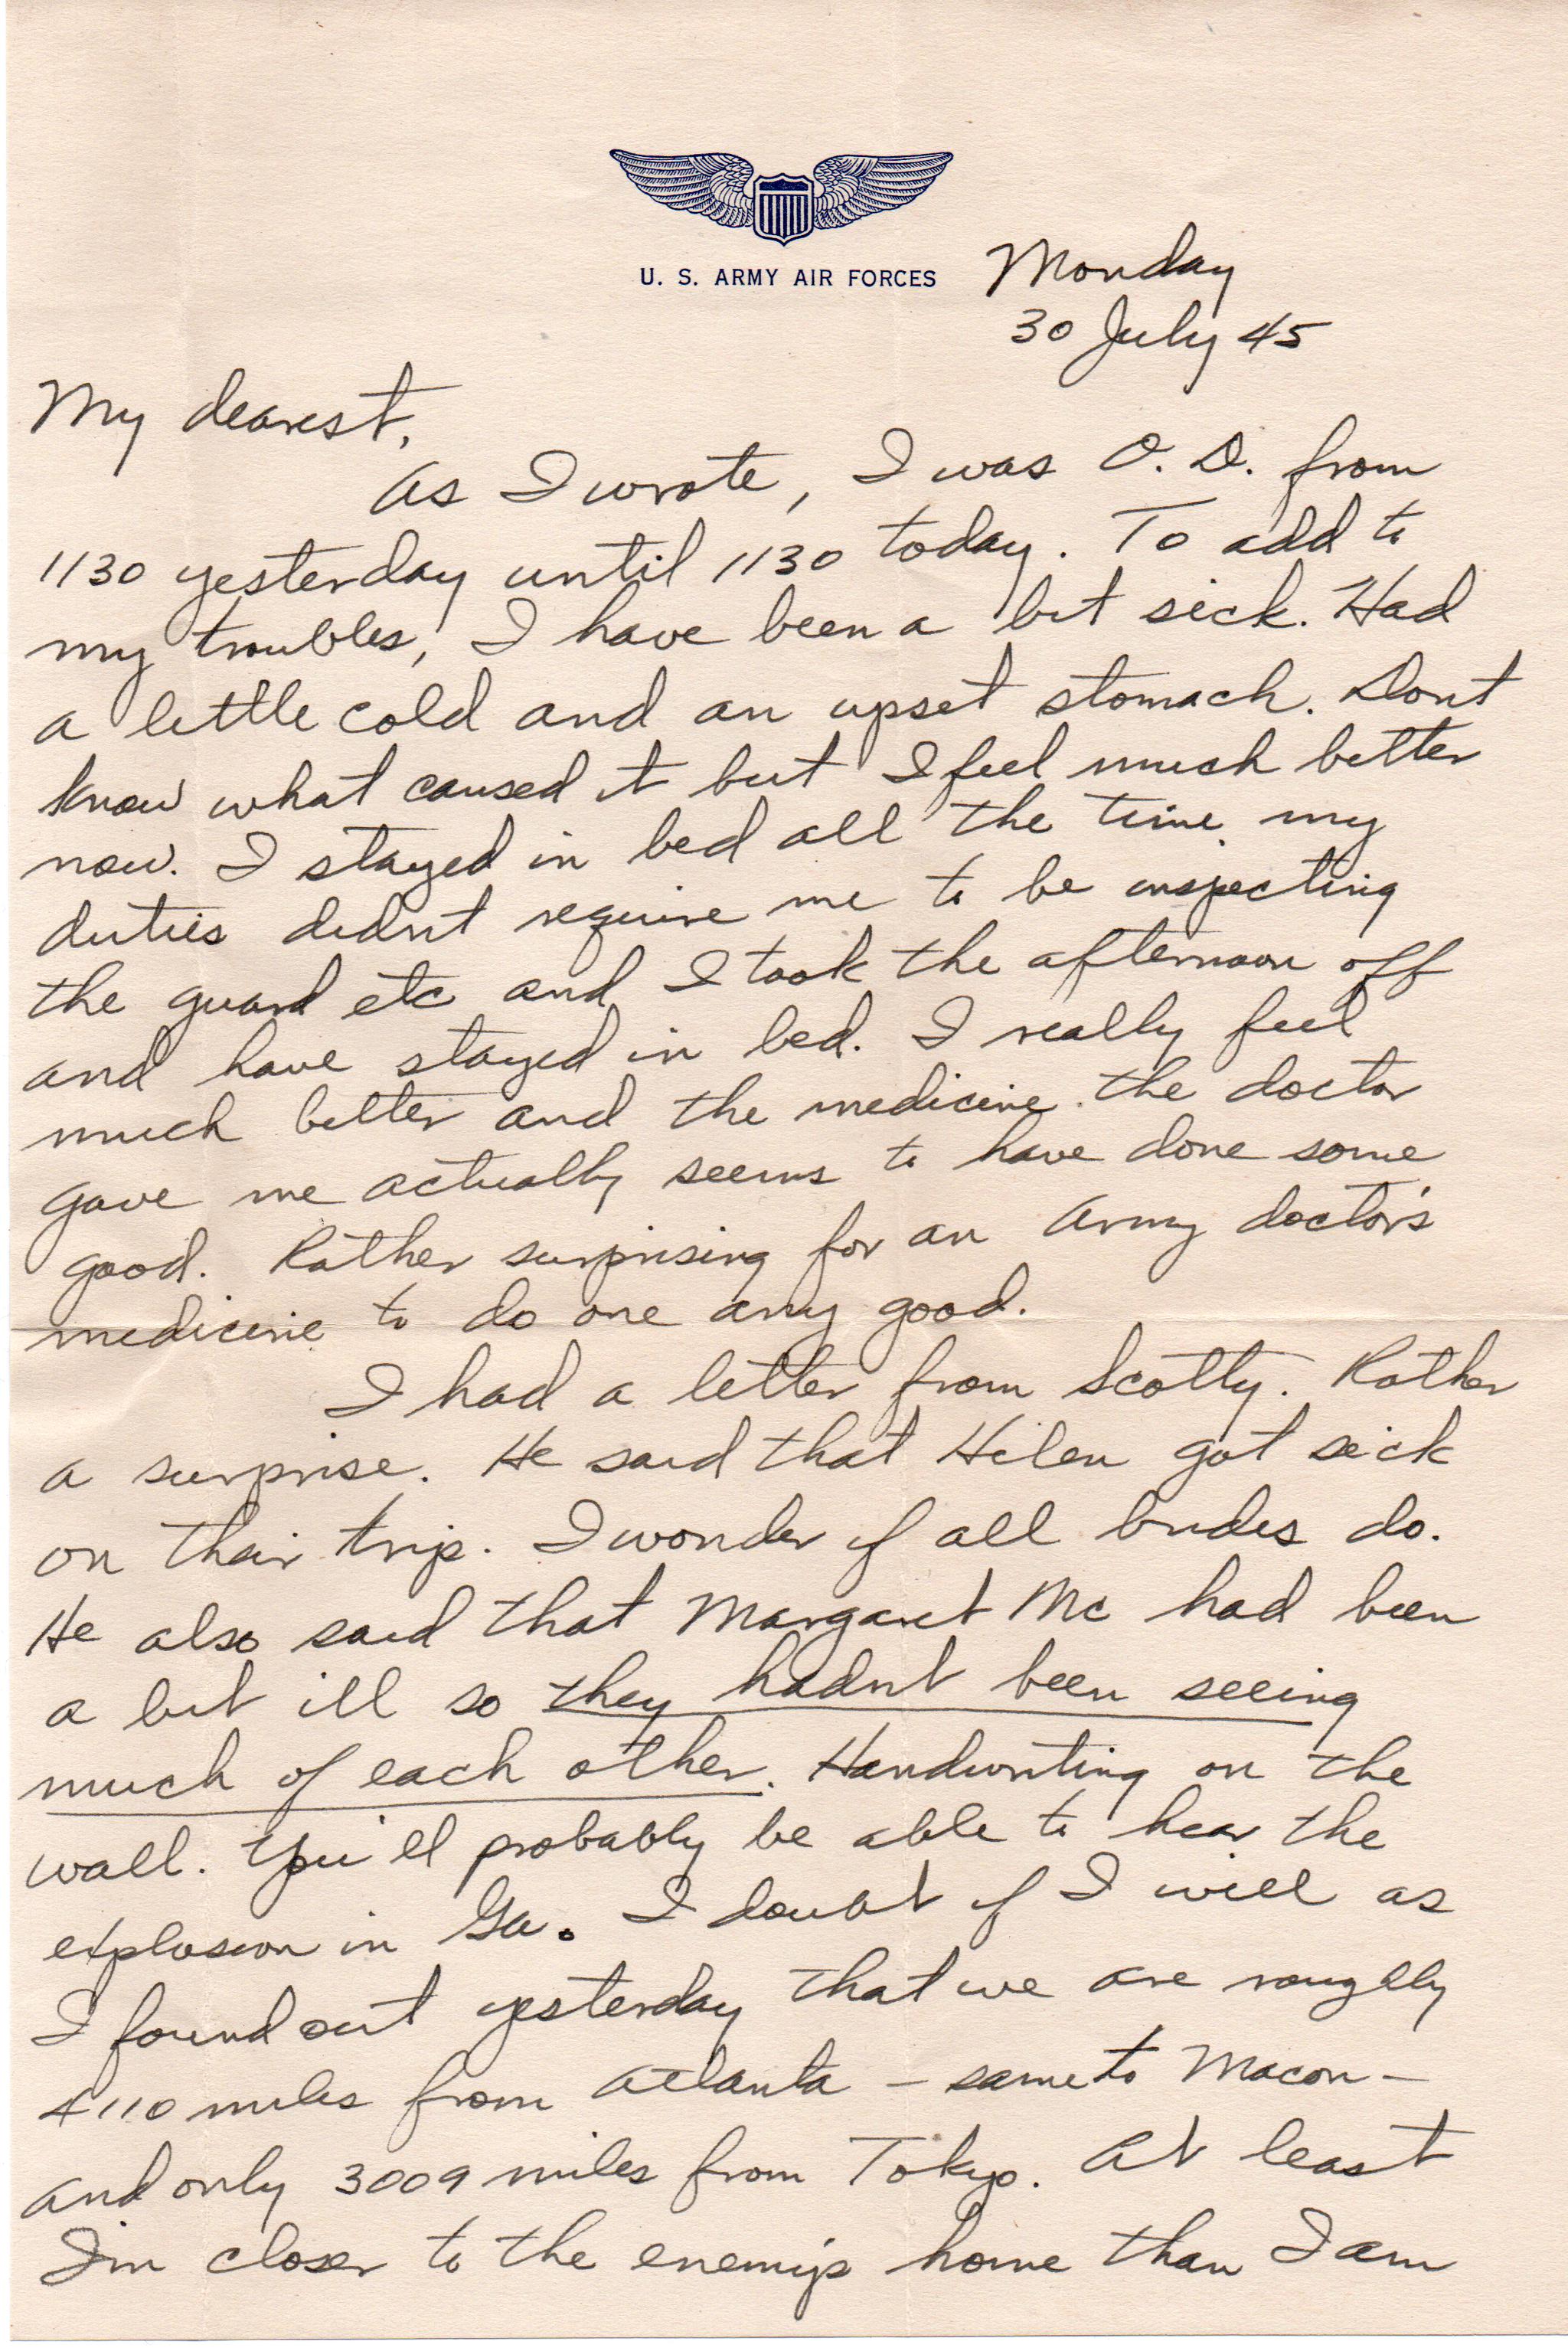 U. S. ARMY AIR FORCES
Monday
30 July 45
My dearest,
As I wrote, I was O. D. from
1130 yesterday until 1130 today. To add to
my troubles, I have been a bit sick. Had
a little cold and an upset stomach. Dont
know what caused it but I feel much better
now. I stayed in bed all the time my
duties didnt require me to be inspecting
the guard etc and I took the afternoon off
and have stayed in bed. I really feel
much better and the medicine the doctor
gave me actually seems to have done some
good. Rather surprising for an Army doctor's
medicine to do one any good.
I had a letter from Scotty. Rather
a surprise. He said that Helen got sick
on their trip. I wonder if all brides do.
He also said that Margaret Mc had been
a bit ill so they hadnt been seeing
much of each other. Handwriting on the
wall. You'll probably be able to hear the
explosion in Ga. I doubt if I will as
I found out yesterday that we are roughly
4110 miles from Atlanta - same to Macon -
and only 3009 miles from Tokyo. At least
I'm closer to the enemys home than I am